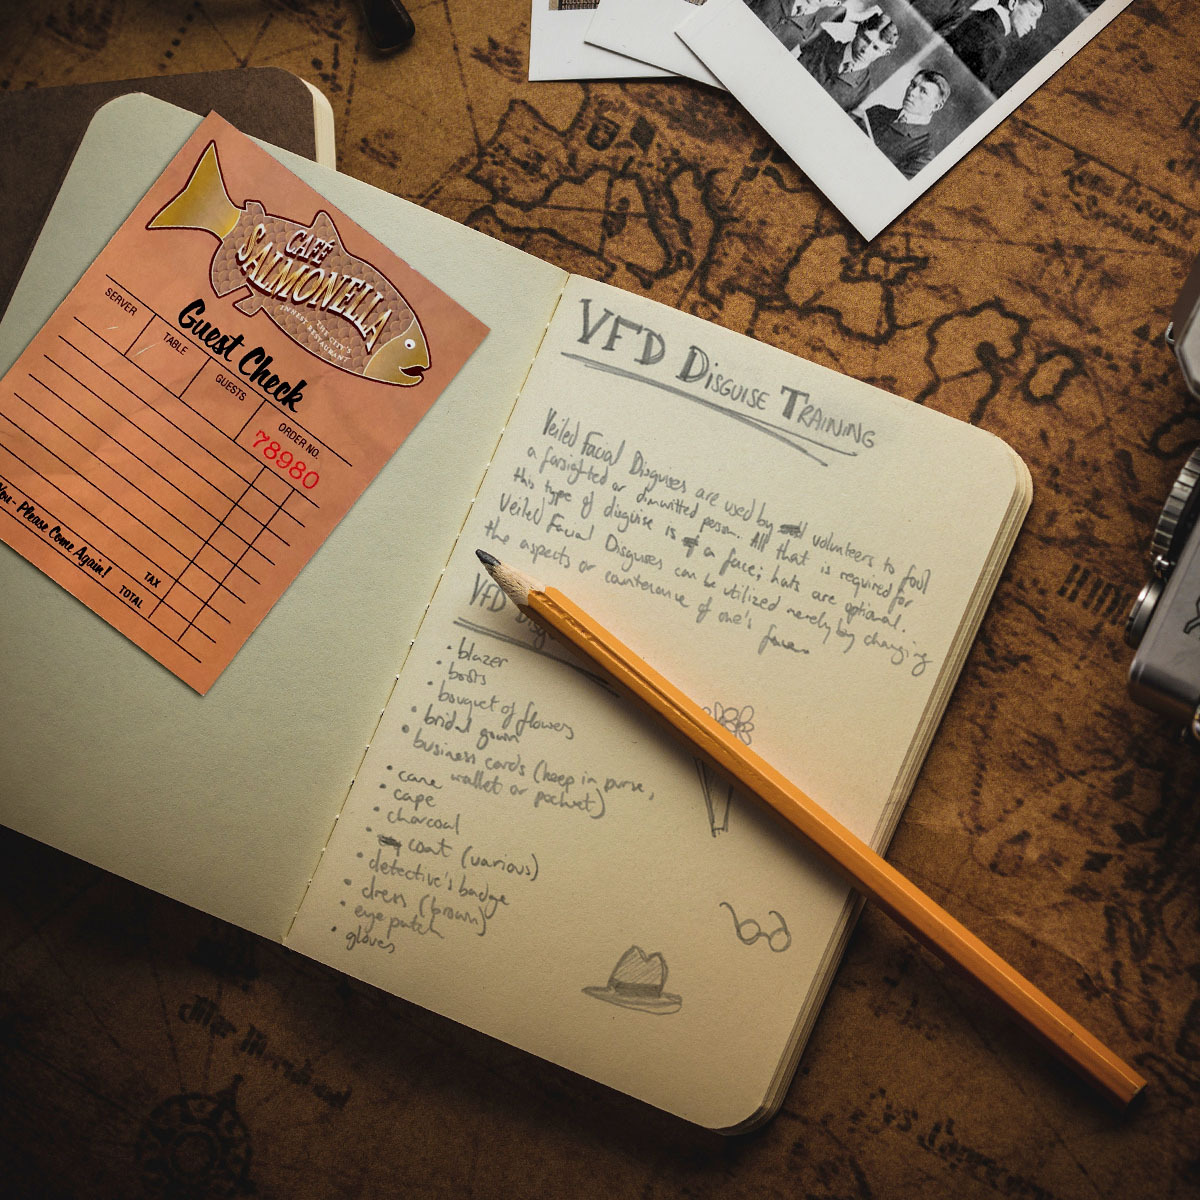 CAFÉ
SALMONELLA
THE CITY'S
FINEST RESTAURANT
Guest Check
SERVER
TABLE
GUESTS
ORDER NO.
78980
You - Please Come Again!
TAX
TOTAL
VFD DISGUISE TRAINING
Veiled Facial Disguises are used by volunteers to fool
a farsighted or dimwitted person. All that is required for
this type of disguise is a face; hats are optional.
Veiled Facial Disguises can be utilized merely by changing
the aspects or countenance of one's face.
VFD Disgu
• blazer
• boots
• bouquet of flowers
• bridal gown
• business cards (keep in purse,
wallet or pocket)
• cane
• cape
• charcoal
• coat (various)
• detective's badge
• dress (brown)
• eye patch
• gloves